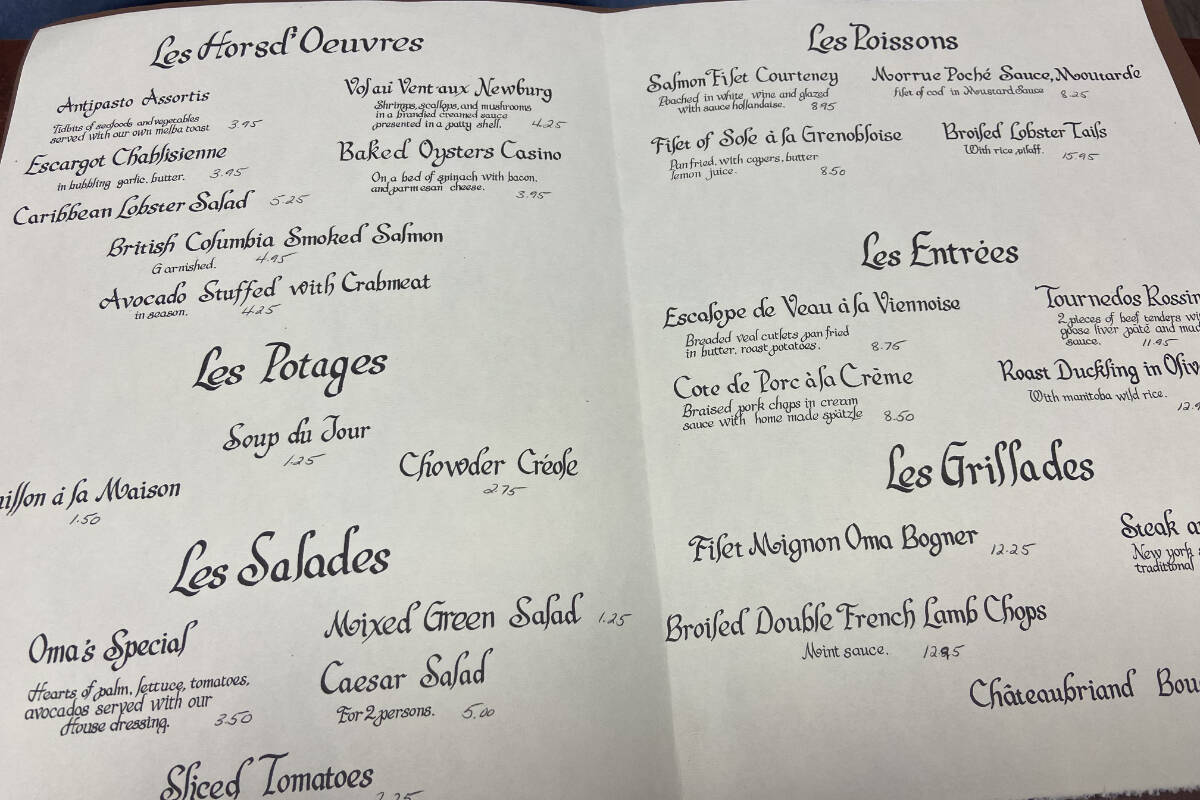 Les Horsd'Oeuvres
Antipasto Assortis
Tidbits of seafoods and vegetables
served with our own melba toast 3.95
Escargot Chablisienne
in bubbling garlic butter. 3.95
Caribbean Lobster Salad 5.25
Vol au Vent aux Newburg
Shrimps, scallops, and mushrooms
in a brandied creamed sauce
presented in a patty shell. 4.25
Baked Oysters Casino
On a bed of spinach with bacon,
and parmesan cheese. 3.95
British Columbia Smoked Salmon
Garnished. 4.95
Avocado Stuffed with Crabmeat
in season. 4.25
Les Potages
Soup du Jour
1.25
Chowder Créole
2.75
à la Maison
1.50
Les Salades
Oma's Special
Hearts of palm, lettuce, tomatoes,
avocados served with our
House dressing. 3.50
Mixed Green Salad 1.25
Caesar Salad
For 2 persons. 5.00
Sliced Tomatoes
2.25
Les Poissons
Salmon Filet Courteney
Poached in white wine and glazed
with sauce hollandaise. 8.95
Morrue Poché Sauce, Moutarde
filet of cod in Moustard Sauce 8.25
Filet of Sole à la Grenobloise
Pan fried, with capers, butter
lemon juice. 8.50
Broiled Lobster Tails
With rice pilaff. 15.95
Les Entrées
Escalope de Veau à la Viennoise
Breaded veal cutlets pan fried
in butter, roast potatoes. 8.75
Cote de Porc à la Crème
Braised pork chops in cream
sauce with home made spätzle 8.50
Tournedos Rossin
2 pieces of beef tenders wi
goose liver pâté and mad
sauce. 11.95
Roast Duckling in Olive
With manitoba wild rice.
12.9
Les Grillades
Filet Mignon Oma Bogner 12.25
Steak a
New york
traditional
Broiled Double French Lamb Chops
Mint sauce. 12.95
Châteaubriand Bou